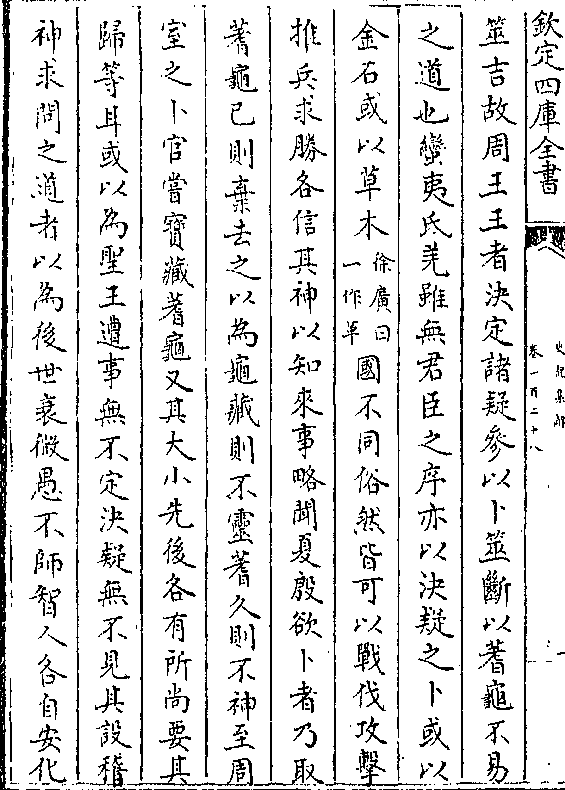 欽定四庫全書
史記集解
卷一百二十八
筮吉故周王王者決定諸疑參以卜筮斷以蓍龜不易
之道也蠻夷氐羌雖無君臣之序亦以決疑之卜或以
金石或以草木徐廣曰一作革國不同俗然皆可以戰伐攻擊
推兵求勝各信其神以知來事略聞夏殷欲卜者乃取
蓍龜已則棄去之以為龜藏則不靈蓍久則不神至周
室之卜官嘗寶藏蓍龜又其大小先後各有所尚要其
歸等耳或以為聖王遭事無不定決疑無不見其設稽
神求問之道者以為後世衰微愚不師智人各自安化